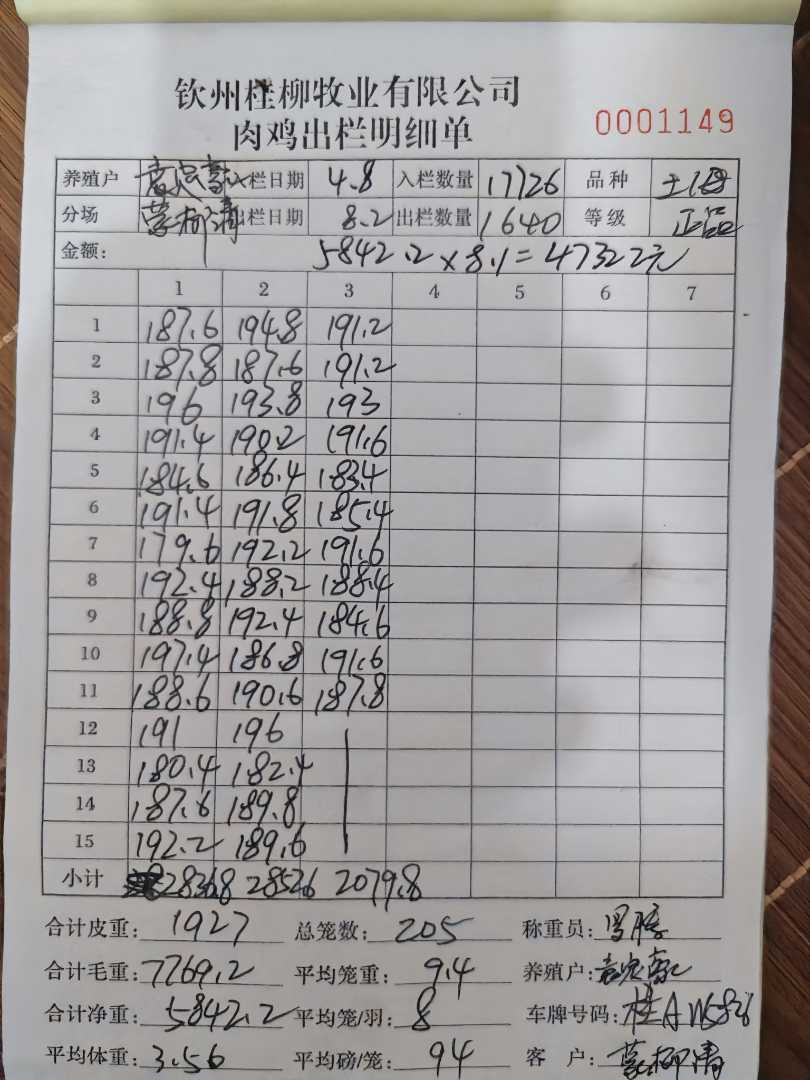 钦州桂柳牧业有限公司
肉鸡出栏明细单
0001149
养殖户 入栏日期 4.8 入栏数量 17726 品种
分场 蒙柳清 出栏日期 8.2 出栏数量 1640 等级 正品
金额: 5842.2×8.1=47322元
1 2 3 4 5 6 7
1 187.6 194.8 191.2
2 187.8 187.6 191.2
3 196 193.8 193
4 191.4 190.2 191.6
5 184.6 186.4 183.4
6 191.4 191.8 185.4
7 179.6 192.2 191.6
8 192.4 188.2 188.4
9 188.8 192.4 184.6
10 197.4 186.8 191.6
11 188.6 190.6 187.8
12 191 196
13 180.4 182.4
14 187.6 189.8
15 192.2 189.6
小计 2836.8 2852.6 2079.8
合计皮重: 1927 总笼数: 205 称重员:
合计毛重: 7769.2 平均笼重: 9.4 养殖户:
合计净重: 5842.2 平均笼/羽: 8 车牌号码:
平均体重: 3.56 平均磅/笼: 94 客户: 蒙柳清